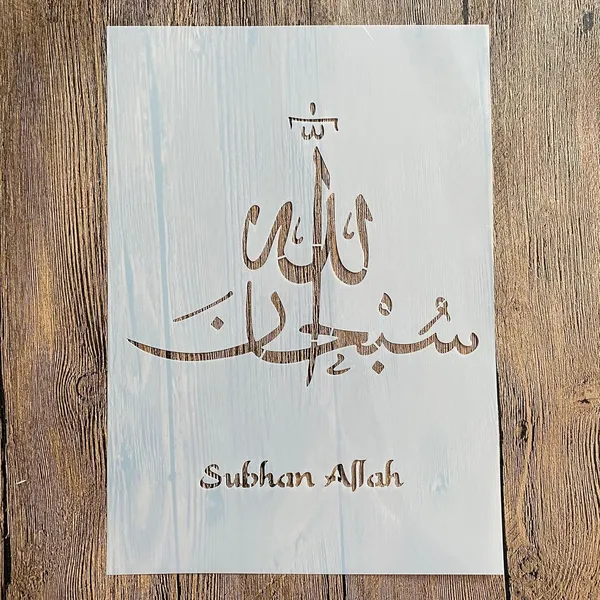 الله
سُبْحَانَ
Subhan Allah